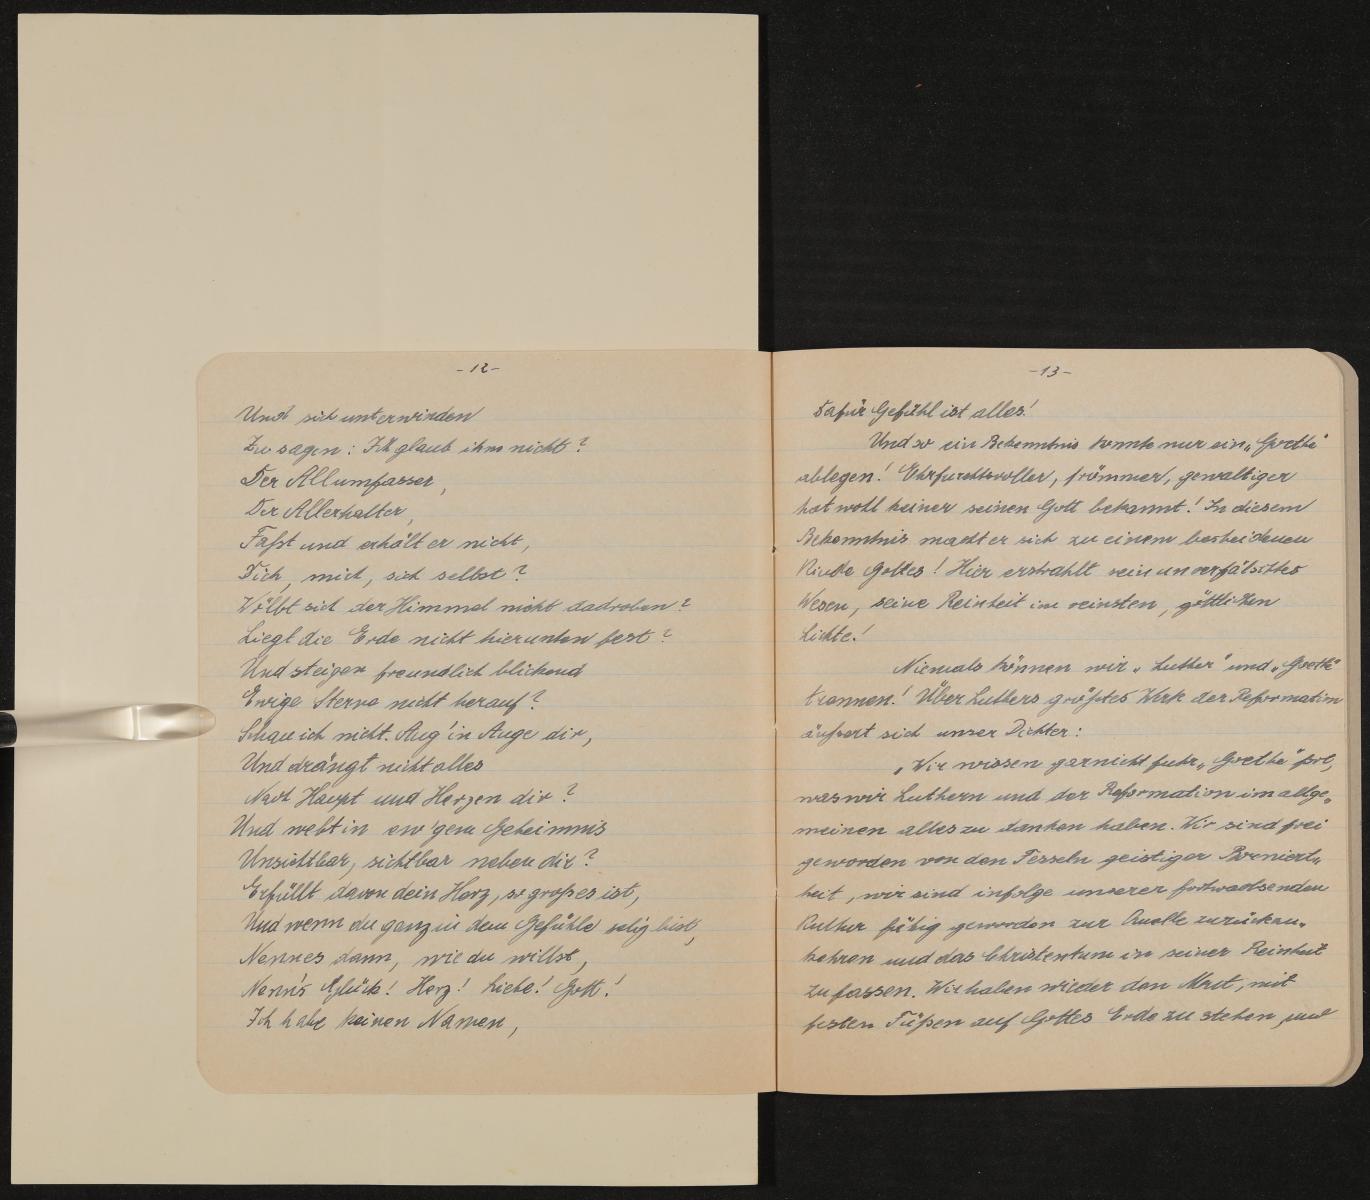 -12-
Und sich unterwinden
Zu sagen: Ich glaub ihm nicht?
Der Allumfasser,
Der Allerhalter,
Faßt und erhält er nicht,
Dich, mich, sich selbst?
Wölbt sich der Himmel nicht dadroben?
Liegt die Erde nicht hierunten fest?
Und steigen freundlich blickend
Ewige Sterne nicht herauf?
Schau ich nicht Aug' in Auge dir,
Und drängt nicht alles
Nach Haupt und Herzen dir?
Und webt in ew'gem Geheimnis
Unsichtbar, sichtbar neben dir?
Erfüll davon dein Herz, so groß es ist,
Und wenn du ganz in dem Gefühle selig bist,
Nenn es dann, wie du willst,
Nenn's Glück! Herz! Liebe! Gott!
Ich habe keinen Namen,
-13-
Dafür Gefühl ist alles!
Und so ein Bekenntnis konnte nur ein „Goethe"
ablegen! Ehrfurchtsvoller, frömmer, gewaltiger
hat wohl keiner seinen Gott bekannt! In diesem
Bekenntnis macht er sich zu einem bescheidenen
Kinde Gottes! Hier erstrahlt sein unverfälschtes
Wesen, seine Reinheit im reinsten, göttlichen
Lichte!
Niemals können wir „Luther" und „Goethe"
trennen! Über Luthers größtes Werk der Reformation
äußert sich unser Dichter:
„Wir wissen garnicht fuhr „Goethe" fort,
was wir Luthern und der Reformation im allge„
meinen alles zu danken haben. Wir sind frei
geworden von den Fesseln geistiger Borniert„
heit, wir sind infolge unserer fortwachsenden
Kultur fähig geworden zur Quelle zurückzu„
kehren und das Christentum in seiner Reinheit
zu fassen. Wir haben wieder den Mut, mit
festen Füßen auf Gottes Erde zu stehen, und